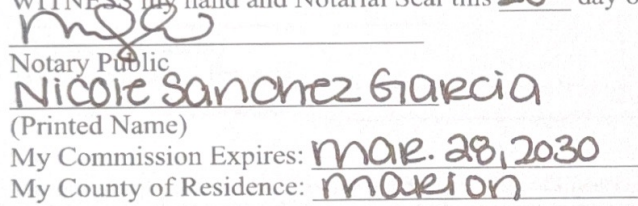 WITNESS my hand and Notarial Seal this day o
Notary Public
Nicole Sanchez Garcia
(Printed Name)
My Commission Expires: Mar. 28, 2030
My County of Residence: Marion